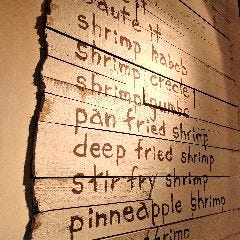 it
saute it
shrimp kabobs
shrimp creole
shrimp gumbo
pan fried shrimp
deep fried shrimp
stir fry shrimp
pinneapple shrimp
shrimp